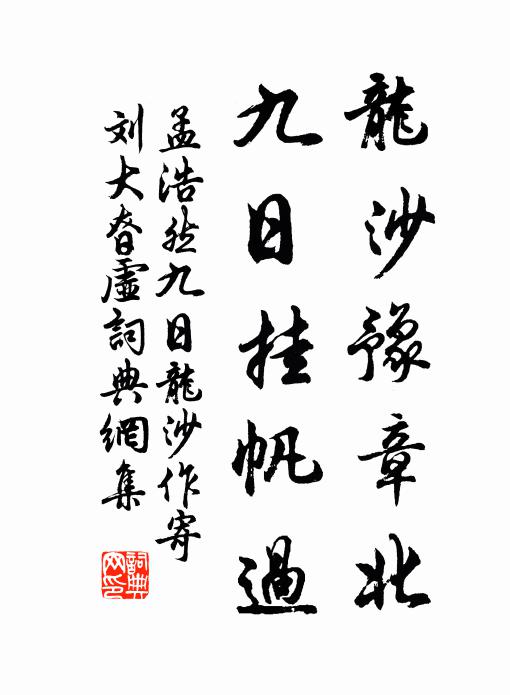 龍沙豫章北
九日挂帆過
孟浩然九日龍沙作寄
刘大昚虛詞典網集
詞典
网印